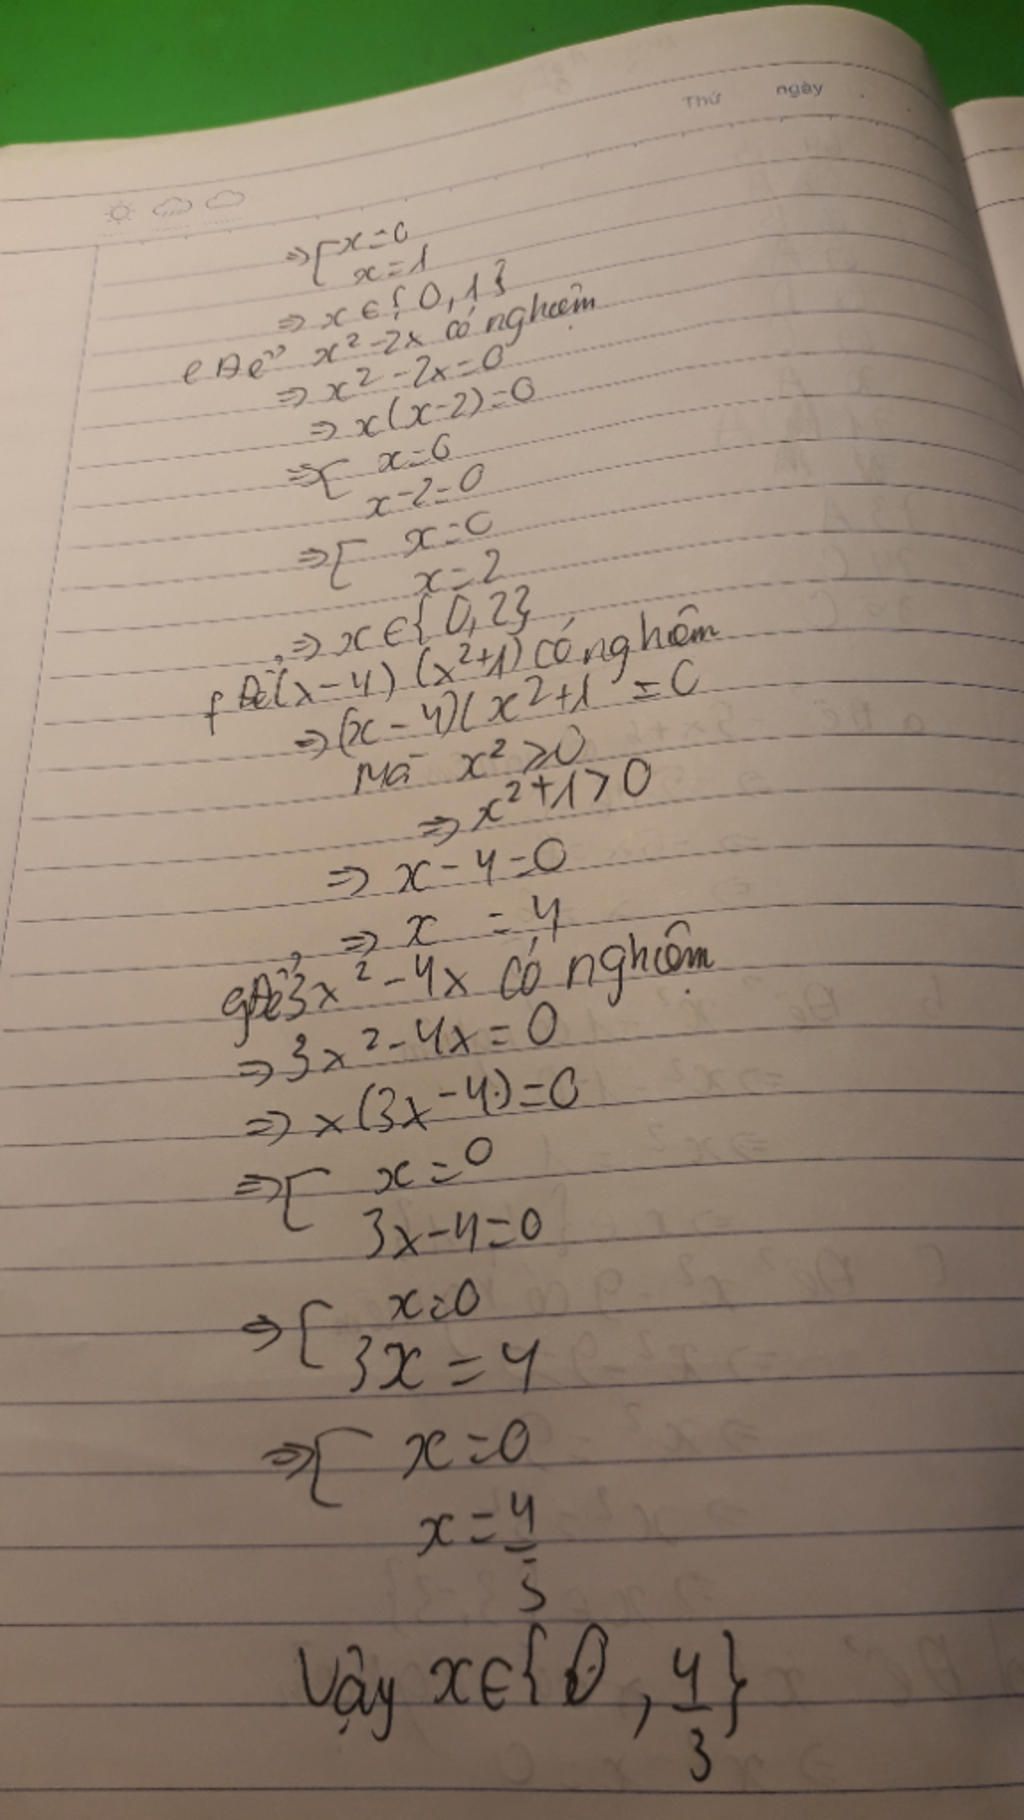 Thứ ngày
⇒[ x=0
x=1
⇒ x∈{0,1}
e Để x²-2x có nghiệm
⇒ x²-2x=0
⇒ x(x-2)=0
⇒[ x=0
x-2=0
⇒[ x=0
x=2
⇒ x∈{0,2}
f Để(x-4)(x²+1) có nghiệm
⇒(x-4)(x²+1 =0
Mà x²≥0
⇒ x²+1>0
⇒ x-4=0
⇒ x =4
g Để 3x²-4x có nghiệm
⇒ 3x²-4x=0
⇒ x(3x-4)=0
⇒[ x=0
3x-4=0
⇒[ x=0
3x=4
⇒[ x=0
x=4/3
Vậy x∈{0,4/3}